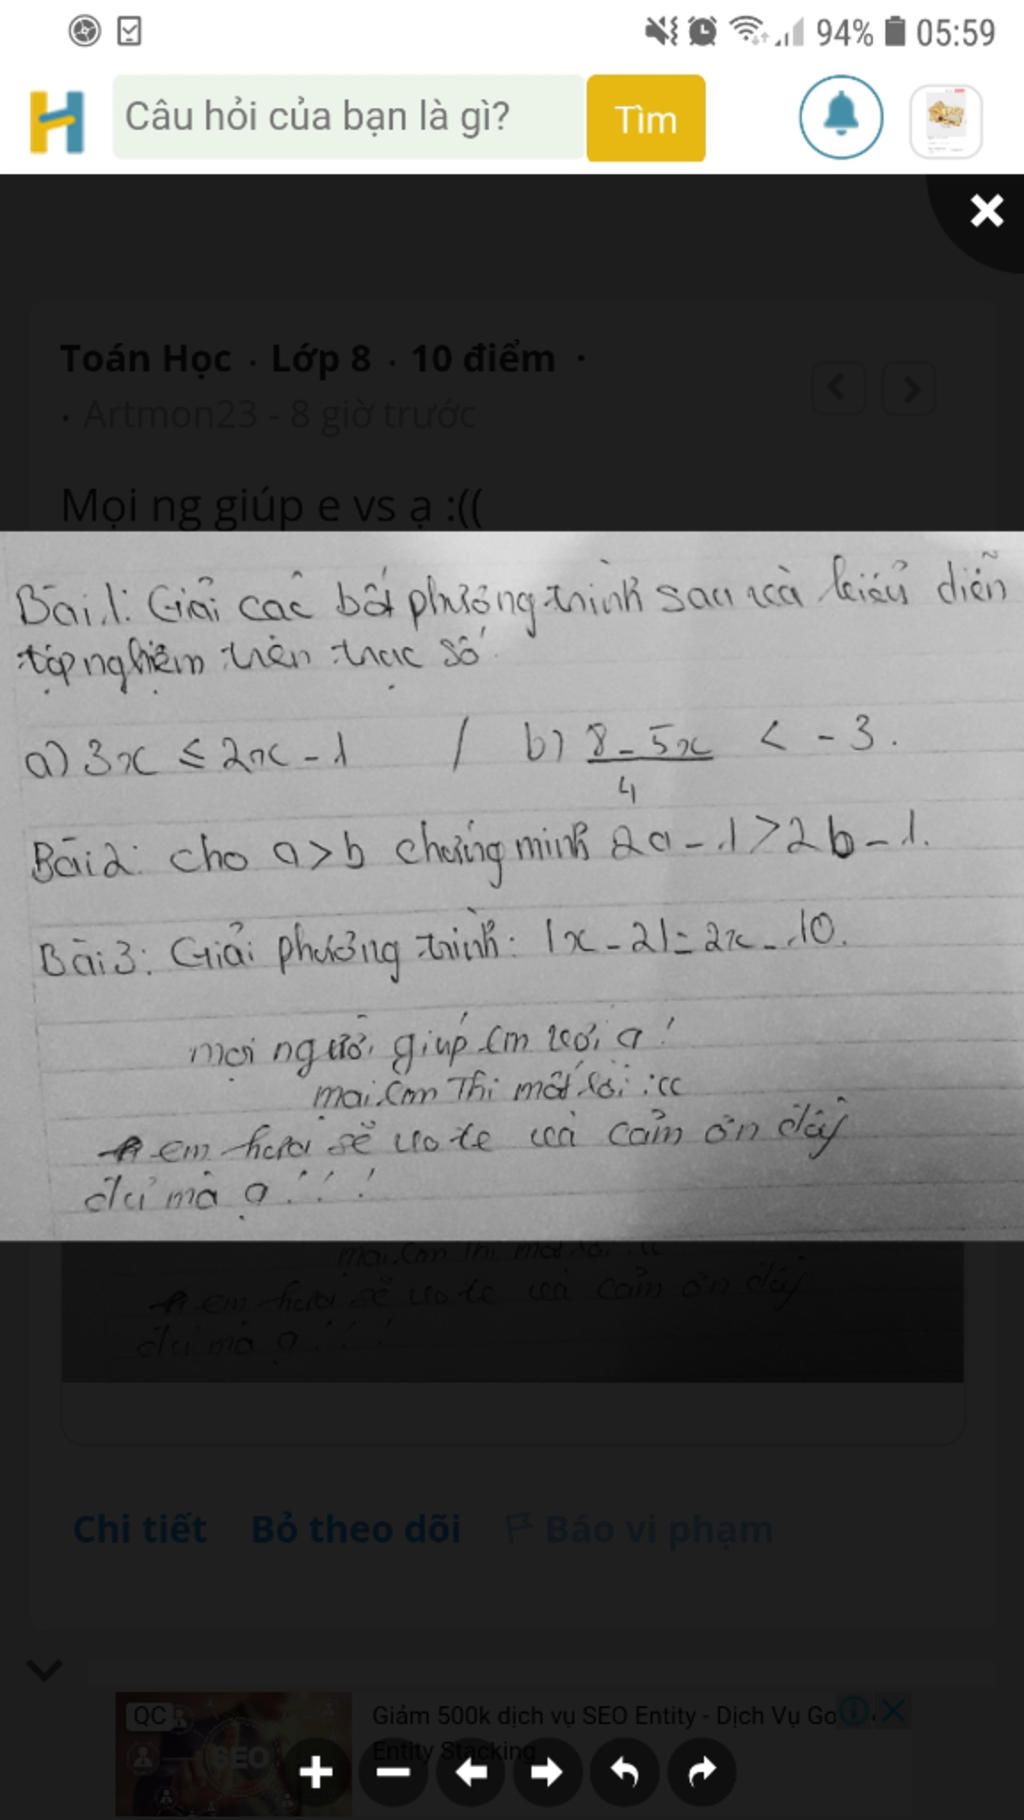 94% 05:59
H Câu hỏi của bạn là gì? Tìm
Toán Học · Lớp 8 · 10 điểm ·
· Artmon23 - 8 giờ trước
Mọi ng giúp e vs ạ :((
Bài 1: Giải các bất phương trình sau và biểu diễn
tập nghiệm trên trục số
a) 3x ≤ 2x - 1 / b) (8 - 5x)/4 < -3.
Bài 2: cho a > b chứng minh 2a - 1 > 2b - 1.
Bài 3: Giải phương trình: |x - 2| = 2x - 10.
mọi người giúp em với ạ!
mai em Thi mất rồi :((
em hứa sẽ vote và cảm ơn đầy
đủ mà ạ!!!
mai em Thi mất rồi :((
em hứa sẽ vote và cảm ơn đầy
đủ mà ạ!!!
Chi tiết Bỏ theo dõi Báo vi phạm
QC Giảm 500k dịch vụ SEO Entity - Dịch Vụ Go
SEO Entity Stacking